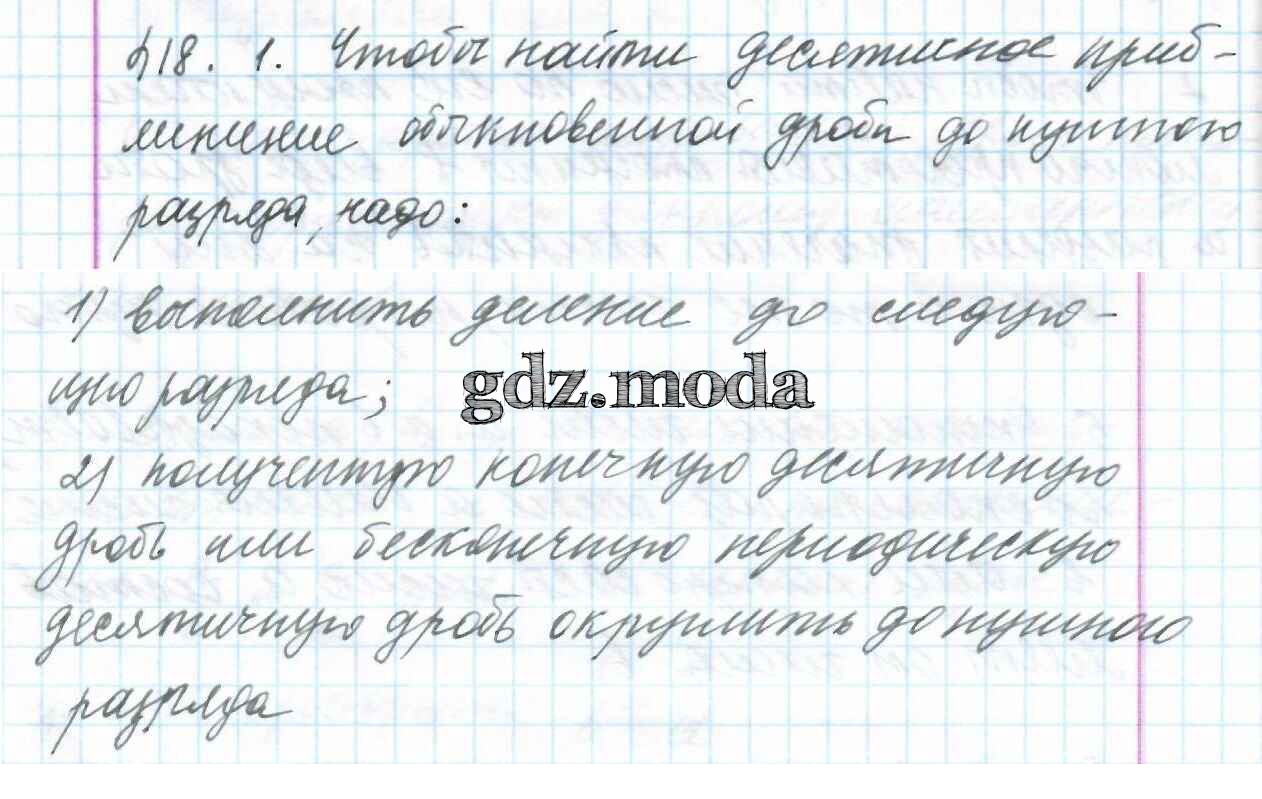 §18. 1. Чтобы найти десятичное приб-
лижение обыкновенной дроби до нужного
разряда, надо:
1) выполнить деление до следую-
щего разряда;
gdz.moda
2) полученную конечную десятичную
дробь или бесконечную периодическую
десятичную дробь округлить до нужного
разряда